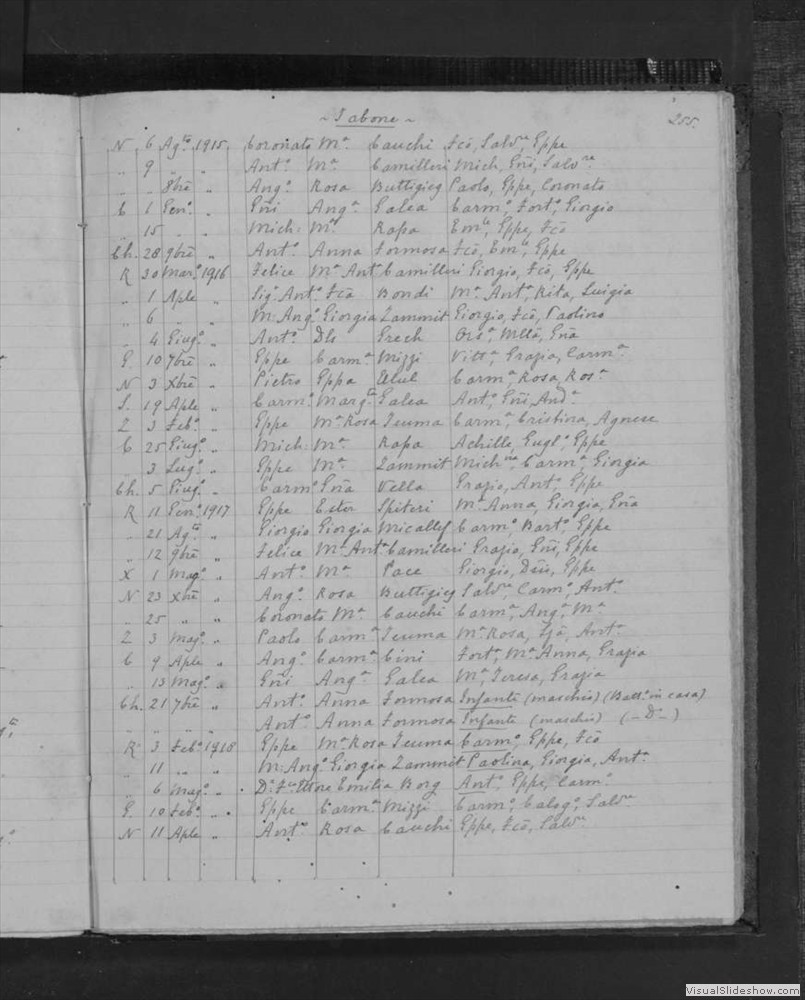 ~ Tabone ~ 255.
N 6 Agto 1915 Coronato Ma Cauchi Fco, Salvre, Eppe
„ 9 „ „ Anto Ma Camilleri Mich, Gni, Salvre
„ „ 8bre „ Ango Rosa Buttigieg Paolo, Eppe, Coronato
C 1 Geno „ Gni Anga Galea Carmo, Forto, Giorgio
„ 15 „ „ Mich: Ma Rapa Emle, Eppe, Fco
Ch. 28 9bre „ Anto Anna Formosa Fco, Emle, Eppe
R 30 Marzo 1916 Felice Ma Anta Camilleri Giorgio, Fco, Eppe
„ 1 Aple „ Sigo Anto Fca Bondi Ma Anta, Rita, Luigia
„ 6 „ „ M: Ango Giorgia Zammit Giorgio, Fco, Paolino
„ 4 Giugo „ Anto Dls Grech Ors, Mlta, Gna
G. 10 7bre „ Eppe Carma Mizzi Vitta, Grazia, Carma
N 3 Xbre „ Pietro Eppa Ellul Carma, Rosa, Rosa
S. 19 Aple „ Carmo Margta Galea Anto, Gni, Anda
Z 3 Febo „ Eppe Ma Rosa Teuma Carma, Cristina, Agnese
C 25 Giugo „ Mich: Ma Rapa Achille, Euglo, Eppe
„ 3 Lugo „ Eppe Ma Zammit Michna, Carma, Giorgia
Ch. 5 Giugo „ Carmo Gna Vella Grazio, Anto, Eppe
R 11 Geno 1917 Eppe Ester Spiteri Ma Anna, Giorgia, Gna
„ 21 Agto „ Giorgio Giorgia Micallef Carmo, Barto, Eppe
„ 12 9bre „ Felice Ma Anta Camilleri Grazio, Gni, Eppe
X 1 Mago „ Anto Ma Pace Giorgio, Eppe
N 23 Xbre „ Ango Rosa Buttigieg Salvre, Carmo, Anto
„ 25 „ „ Coronato Ma Cauchi Carma, Anga, Ma
Z 3 Mago „ Paolo Carma Teuma Ma Rosa, Anta
C 9 Aple „ Ango Carma Cini Forta, Ma Anna, Grazia
„ 13 Mago „ Gni Anga Galea Ma, Teresa, Grazia
Ch. 21 7bre „ Anto Anna Formosa Infante (maschio) (Batto in casa)
„ „ „ „ Anto Anna Formosa Infante (maschio) (–Do–)
R 3 Febo 1918 Eppe Ma Rosa Teuma Carmo, Eppe, Fco
„ 11 „ „ M: Ango Giorgia Zammit Paolina, Giorgia, Anta
„ 6 Mago „ Dr Ettore Emilia Borg Anto, Eppe, Carmo
G. 10 Febo „ Eppe Carma Mizzi Carmo, Calogo, Salvre
N 11 Aple „ Anto Rosa Cauchi Eppe, Fco, Salvre
VisualSlideshow.com